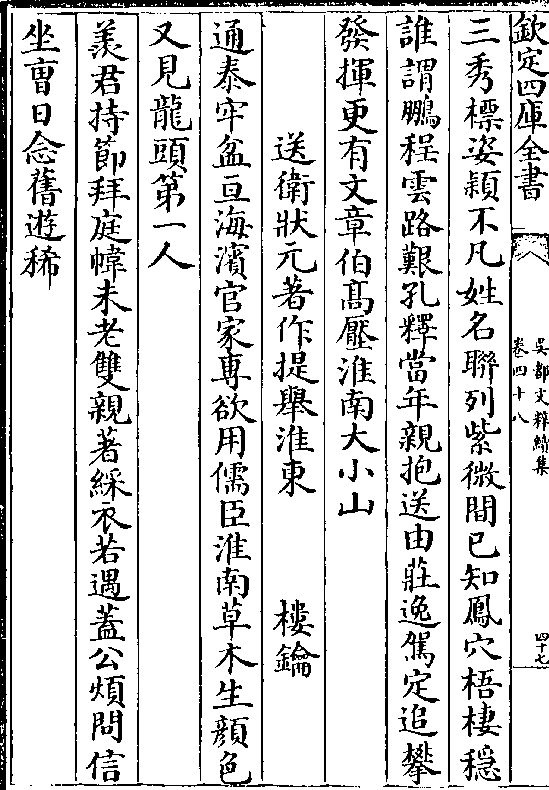 欽定四庫全書
吳都文粹續集
卷四十八
四十七
三秀標姿穎不凡姓名聯列紫微間已知鳳穴梧棲穩
誰謂鵬程雲路艱孔釋當年親抱送由莊逸駕定追攀
發揮更有文章伯髙壓淮南大小山
送衛狀元著作提舉淮東 樓鑰
通泰牢盆亘海濱官家専欲用儒臣淮南草木生顔色
又見龍頭第一人
羨君持節拜庭幃未老雙親著綵衣若遇蓋公煩問信
坐曹日念舊遊稀